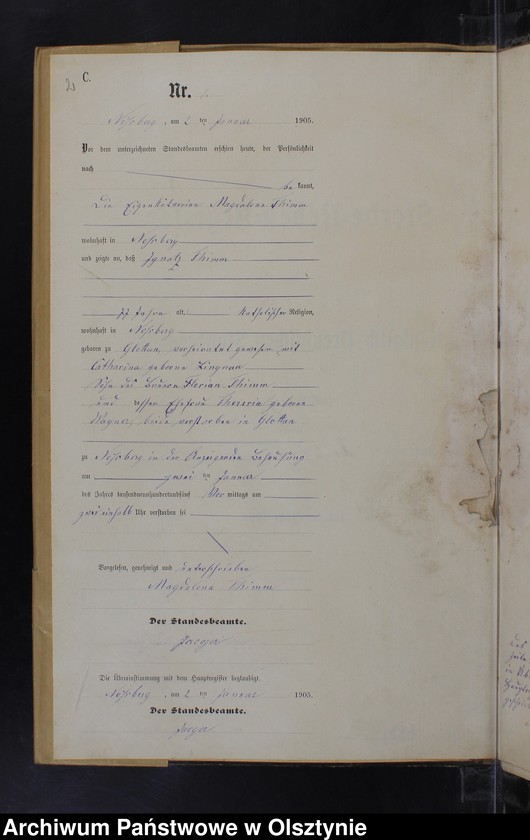 C.
Nr. 1.
Noßberg, am 2 ten Januar 1905.
Vor dem unterzeichneten Standesbeamten erschien heute, der Persönlichkeit
nach
be kannt,
Die Eigenkäthnerin Magdalena Thimm
wohnhaft in Noßberg
und zeigte an, daß Ignatz Thimm
77 Jahre alt, katholischer Religion,
wohnhaft in Noßberg
geboren zu Glottau, verheiratet gewesen mit
Catharina geborne Lingnau
Sohn des Bauern Florian Thimm
und dessen Ehefrau Theresia geborne
Wagner, beide verstorben in Glottau
zu Noßberg in der Anzeigerin Behausung
am zwei ten Januar
des Jahres tausendneunhundertundfünf Vor mittags um
zwei einhalb Uhr verstorben sei
Vorgelesen, genehmigt und unterschrieben
Magdalena Thimm
Der Standesbeamte.
Jaeger
Die Übereinstimmung mit dem Hauptregister beglaubigt.
Noßberg, am 2 ten Januar 1905.
Der Standesbeamte.
Jaeger
Archiwum Państwowe w Olsztynie